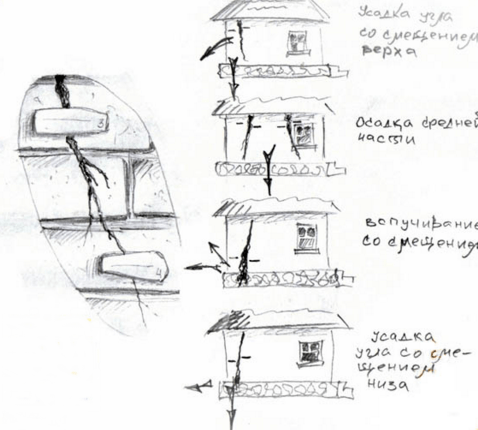 Усадка угла
со смещением
верха
3
Осадка средней
части
вспучивание
со смещением
4
Усадка
угла со сме-
щением
низа